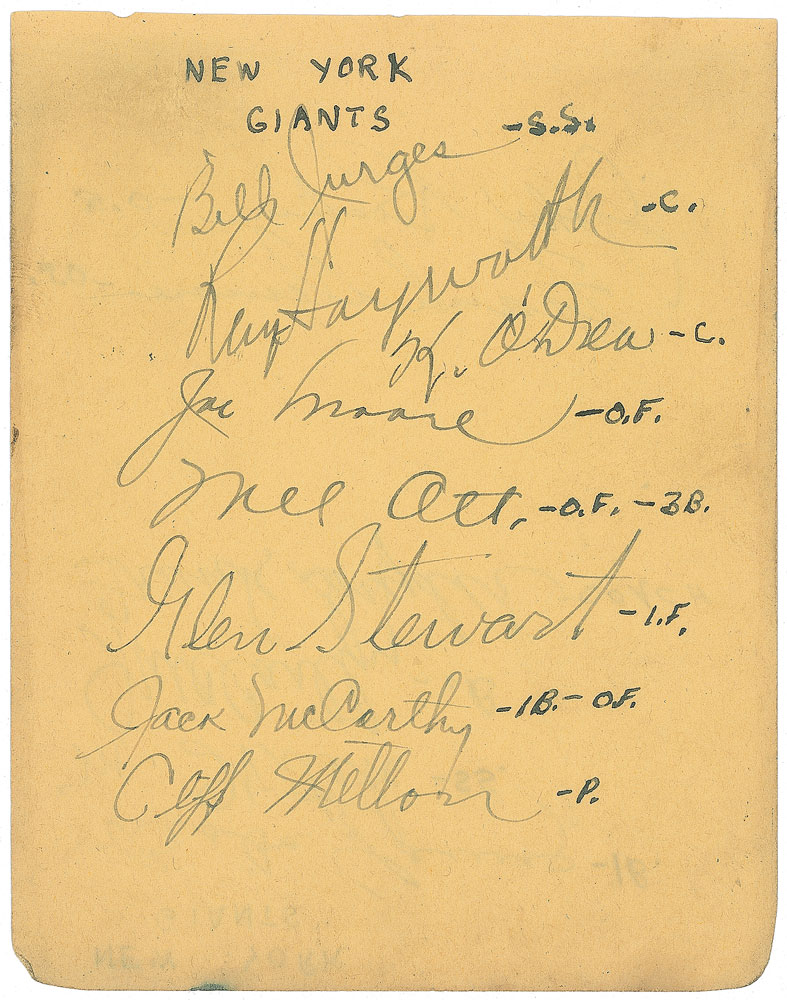 NEW YORK
GIANTS
Bill Jurges -S.S.
Ray Hayworth -C.
K. O'Dea -C.
Joe Moore -O.F.
Mel Ott. -O.F. -3B.
Glen Stewart -I.F.
Jack McCarthy -1B. -O.F.
Cliff Melton -P.